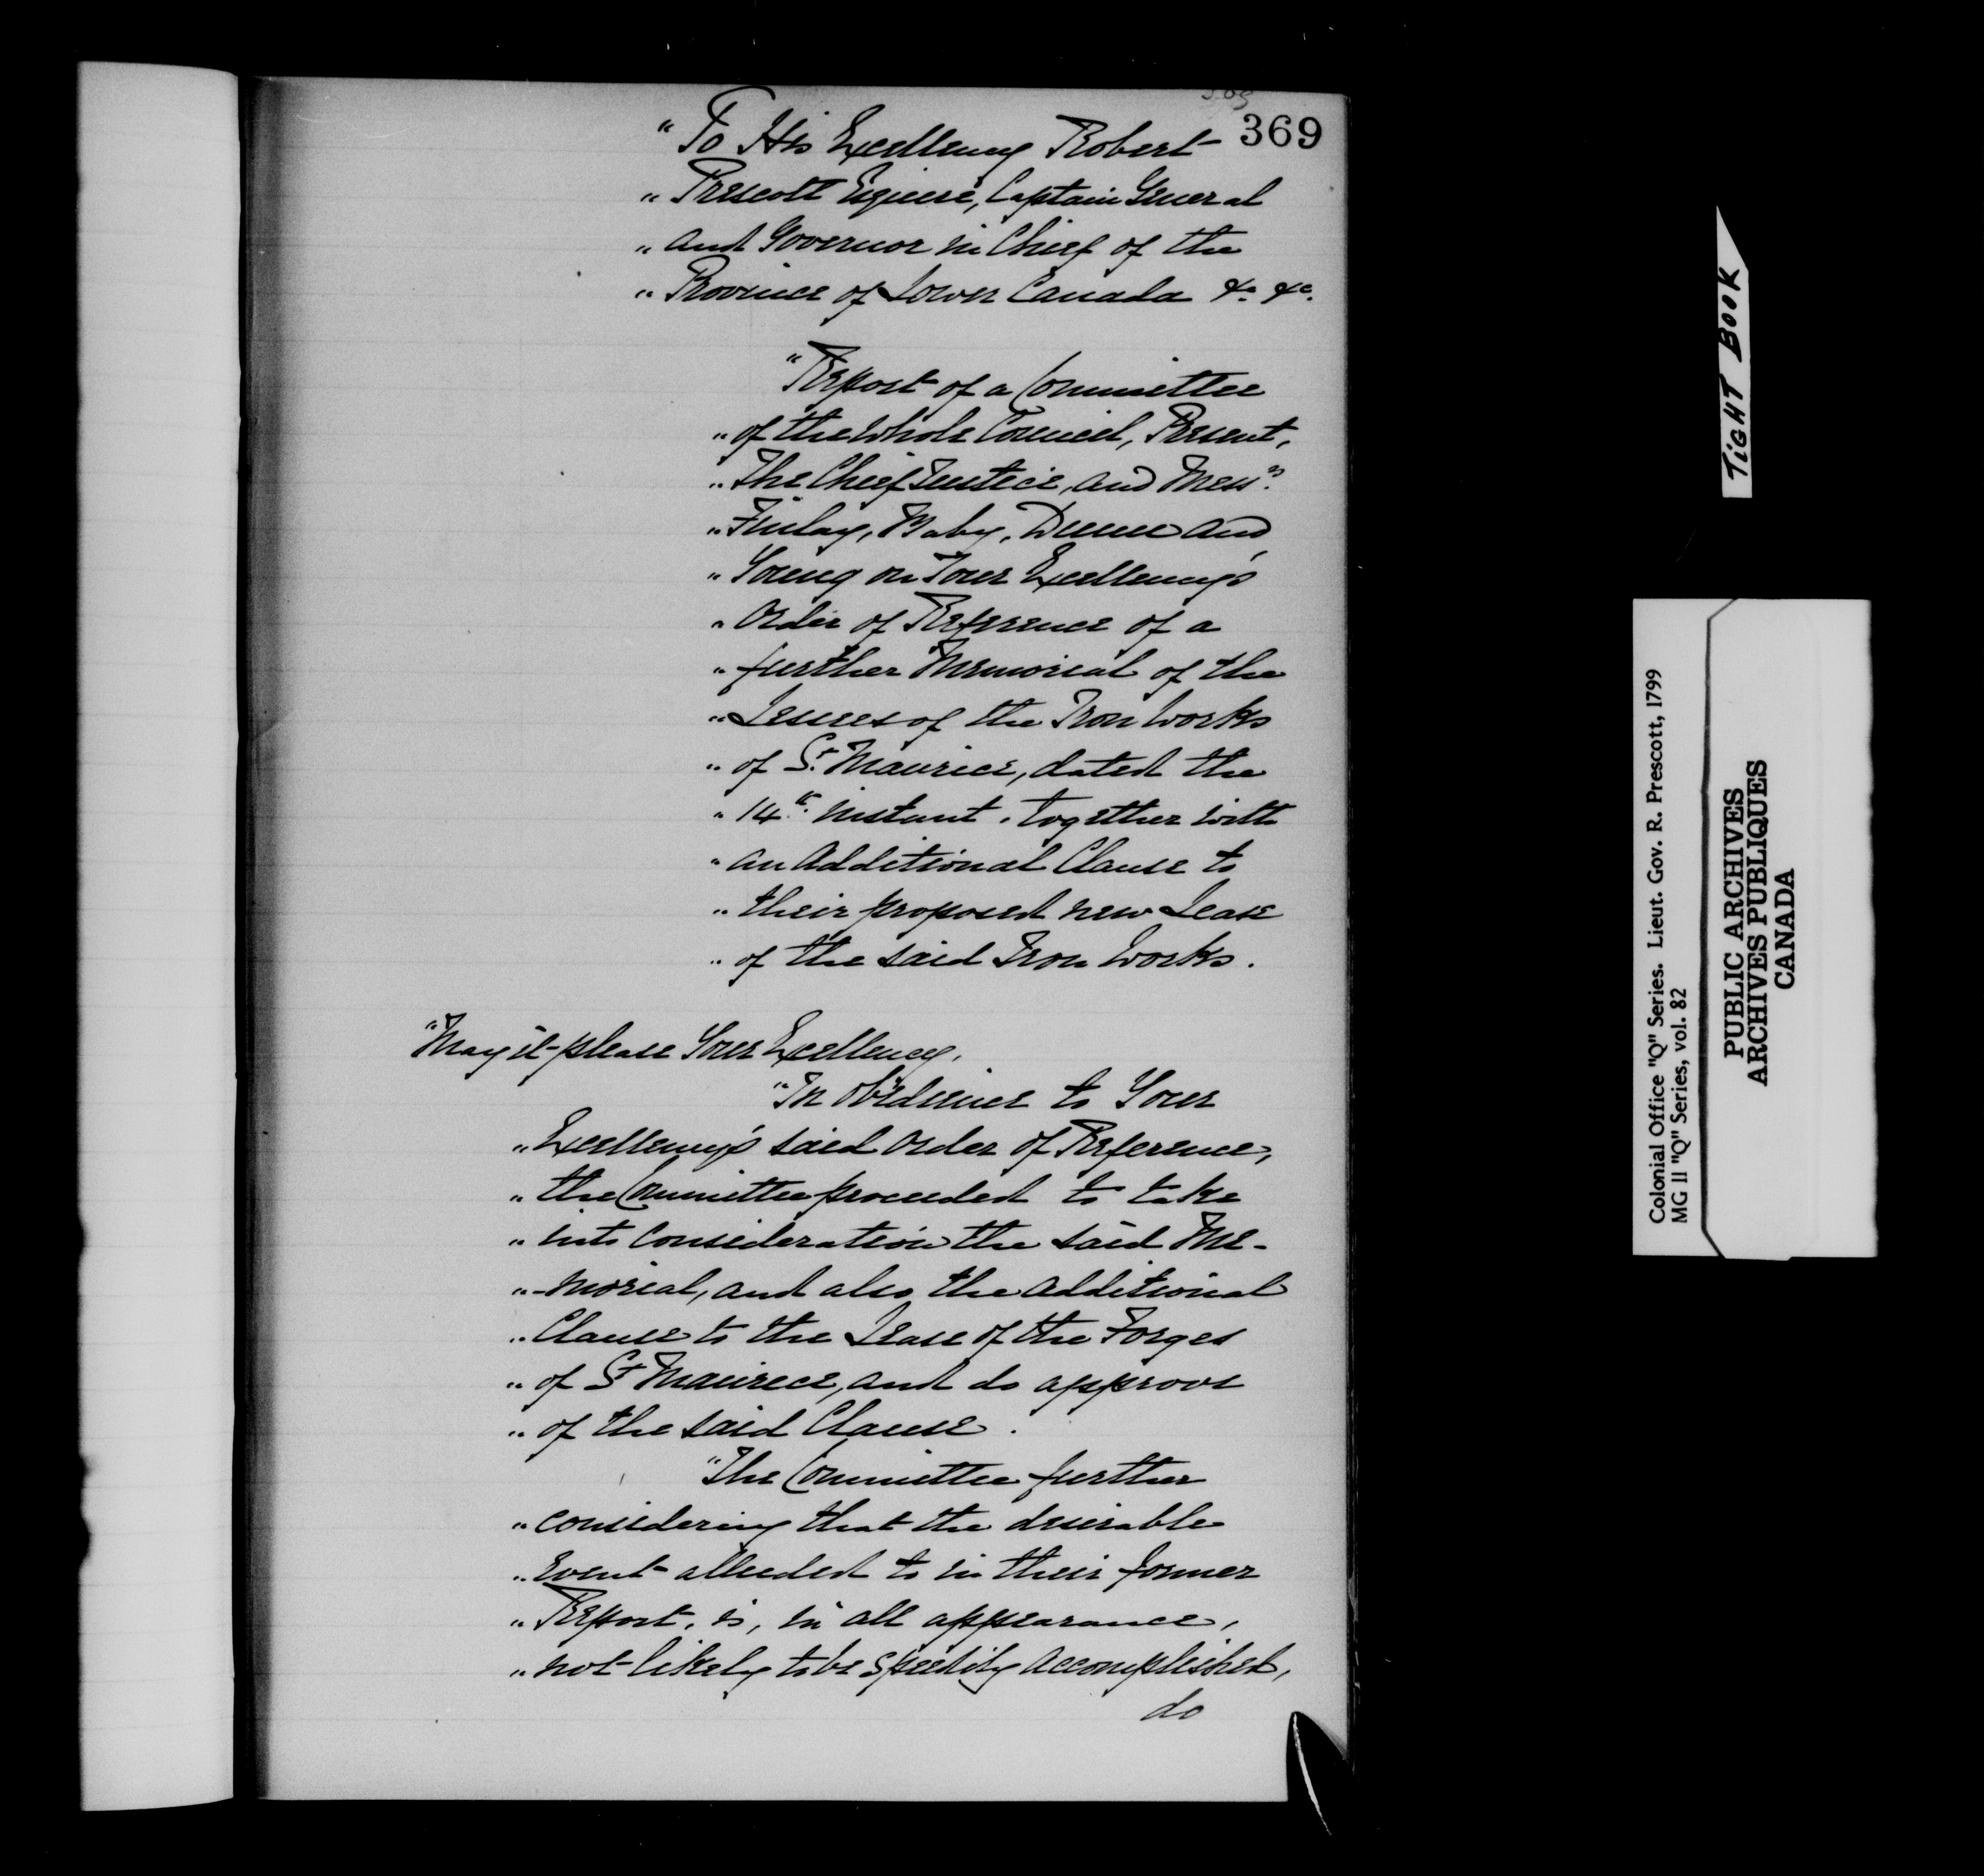 369
"To His Excellency Robert
" Prescott Esquire, Captain General
" and Governor in Chief of the
" Province of Lower Canada &c &c.
"Report of a Committee
" of the Whole Council, Present,
" The Chief Justice, and Messrs.
" Finlay, Baby, Dunn and
" Young on Your Excellency's
" Order of Reference of a
" further Memorial of the
" Lessees of the Iron Works
" of St. Maurice, dated the
" 14th. instant, together with
" an Additional Clause to
" their proposed new Lease
" of the said Iron Works.
"May it please Your Excellency,
"In obedience to Your
" Excellency's said Order of Reference,
" the Committee proceeded to take
" into Consideration the said Me-
" -morial, and also the additional
" Clause to the Lease of the Forges
" of St Maurice, and do approve
" of the said Clause.
"The Committee further
" considering that the desirable
" Event alluded to in their former
" Report, is, in all appearance,
" not likely to be speedily accomplished,
do
TIGHT BOOK
Colonial Office "Q" Series. Lieut. Gov. R. Prescott, 1799
MG II "Q" Series, vol. 82
PUBLIC ARCHIVES
ARCHIVES PUBLIQUES
CANADA